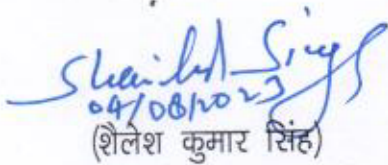 Shailesh Singh
04/08/2023
(शैलेश कुमार सिंह)